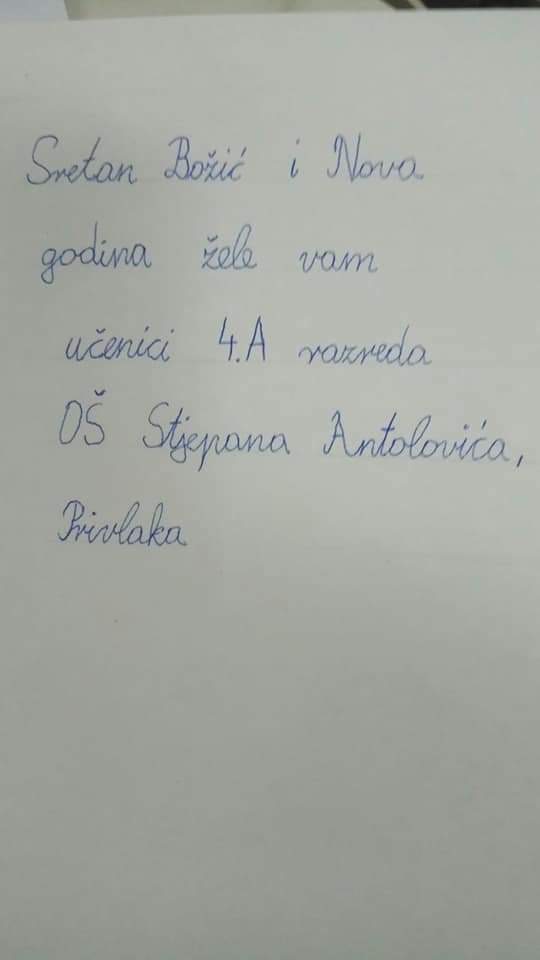 Sretan Božić i Nova
godina žele vam
učenici 4.A razreda
OŠ Stjepana Antolovića,
Privlaka